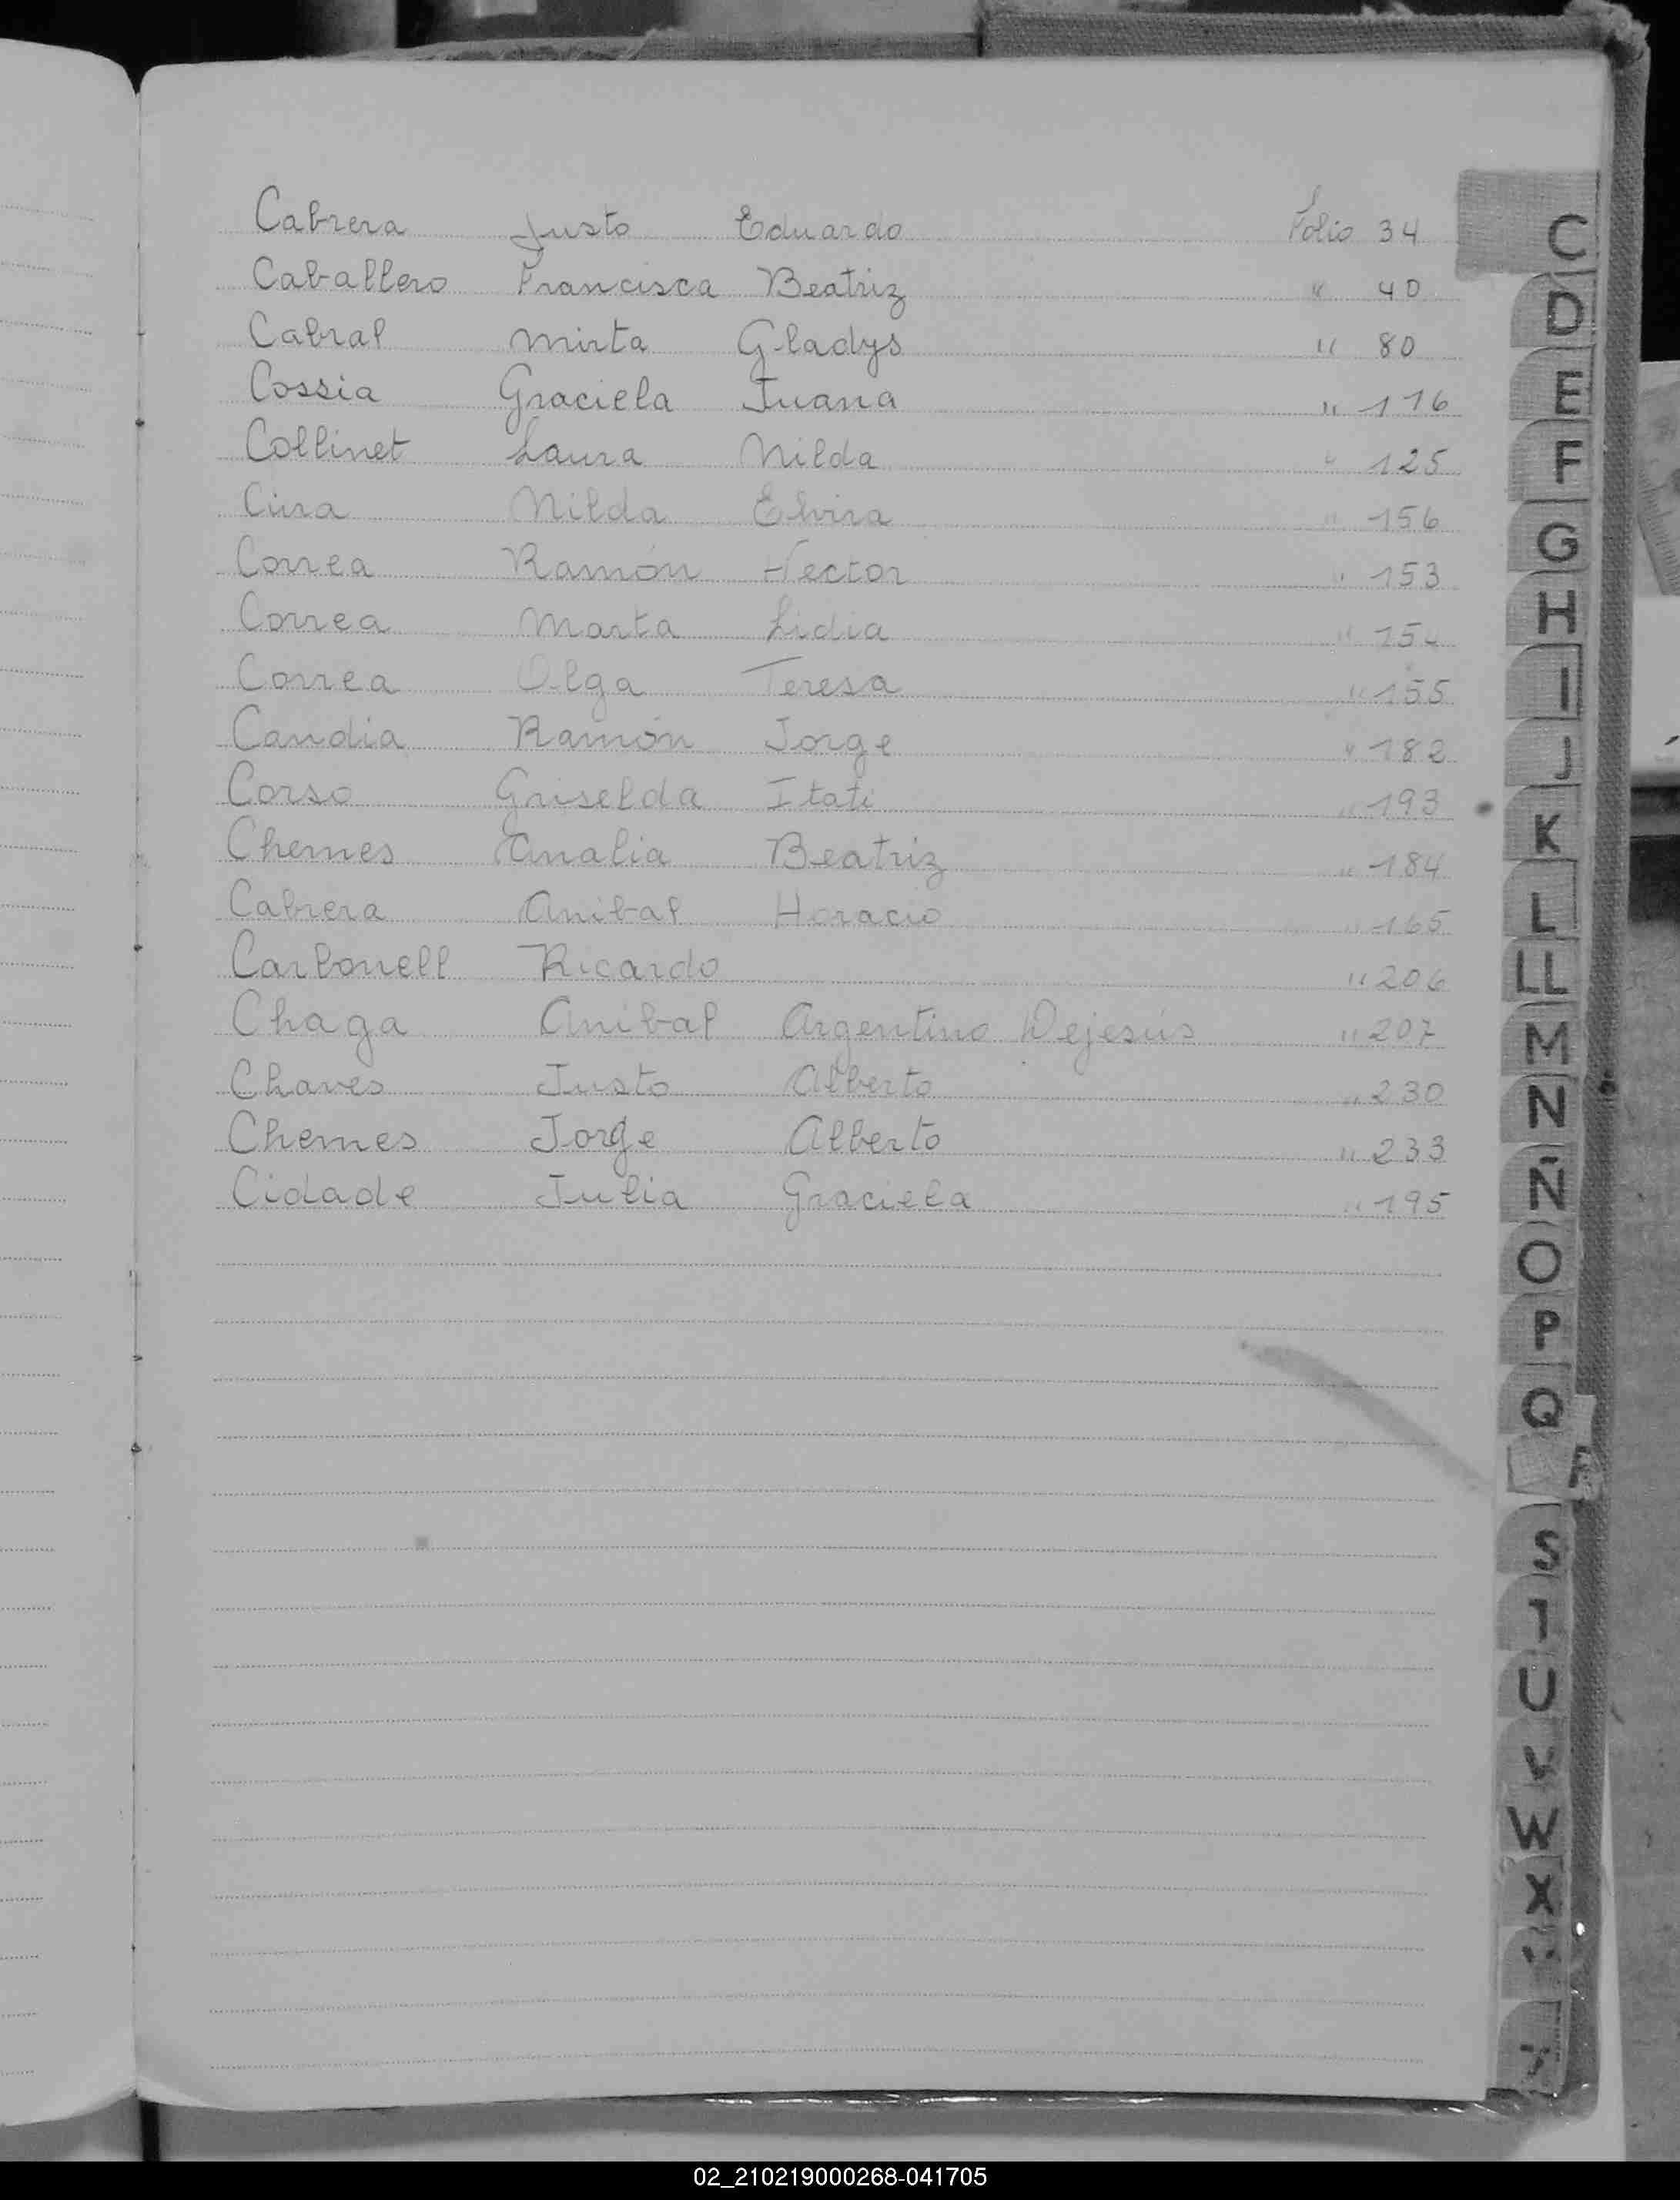 Cabrera Justo Eduardo Folio 34
Caballero Francisca Beatriz " 40
Cabral Mirta Gladys " 80
Cossia Graciela Juana " 116
Collinet Laura Nilda " 125
Nilda Elvira " 156
Correa Ramón Hector " 153
Correa Marta Lidia " 154
Correa Olga Teresa " 155
Candia Ramón Jorge " 182
Corso Griselda Itati " 193
Chemes Analia Beatriz " 184
Cabrera Anibal Horacio " 165
Carbonell Ricardo " 206
Chaga Anibal Argentino Dejesús " 207
Chaves Justo Alberto " 230
Chemes Jorge Alberto " 233
Cidade Julia Graciela " 195
C
D
E
F
G
H
I
J
K
L
LL
M
N
Ñ
O
P
Q
R
S
T
U
V
W
X
02_210219000268-041705